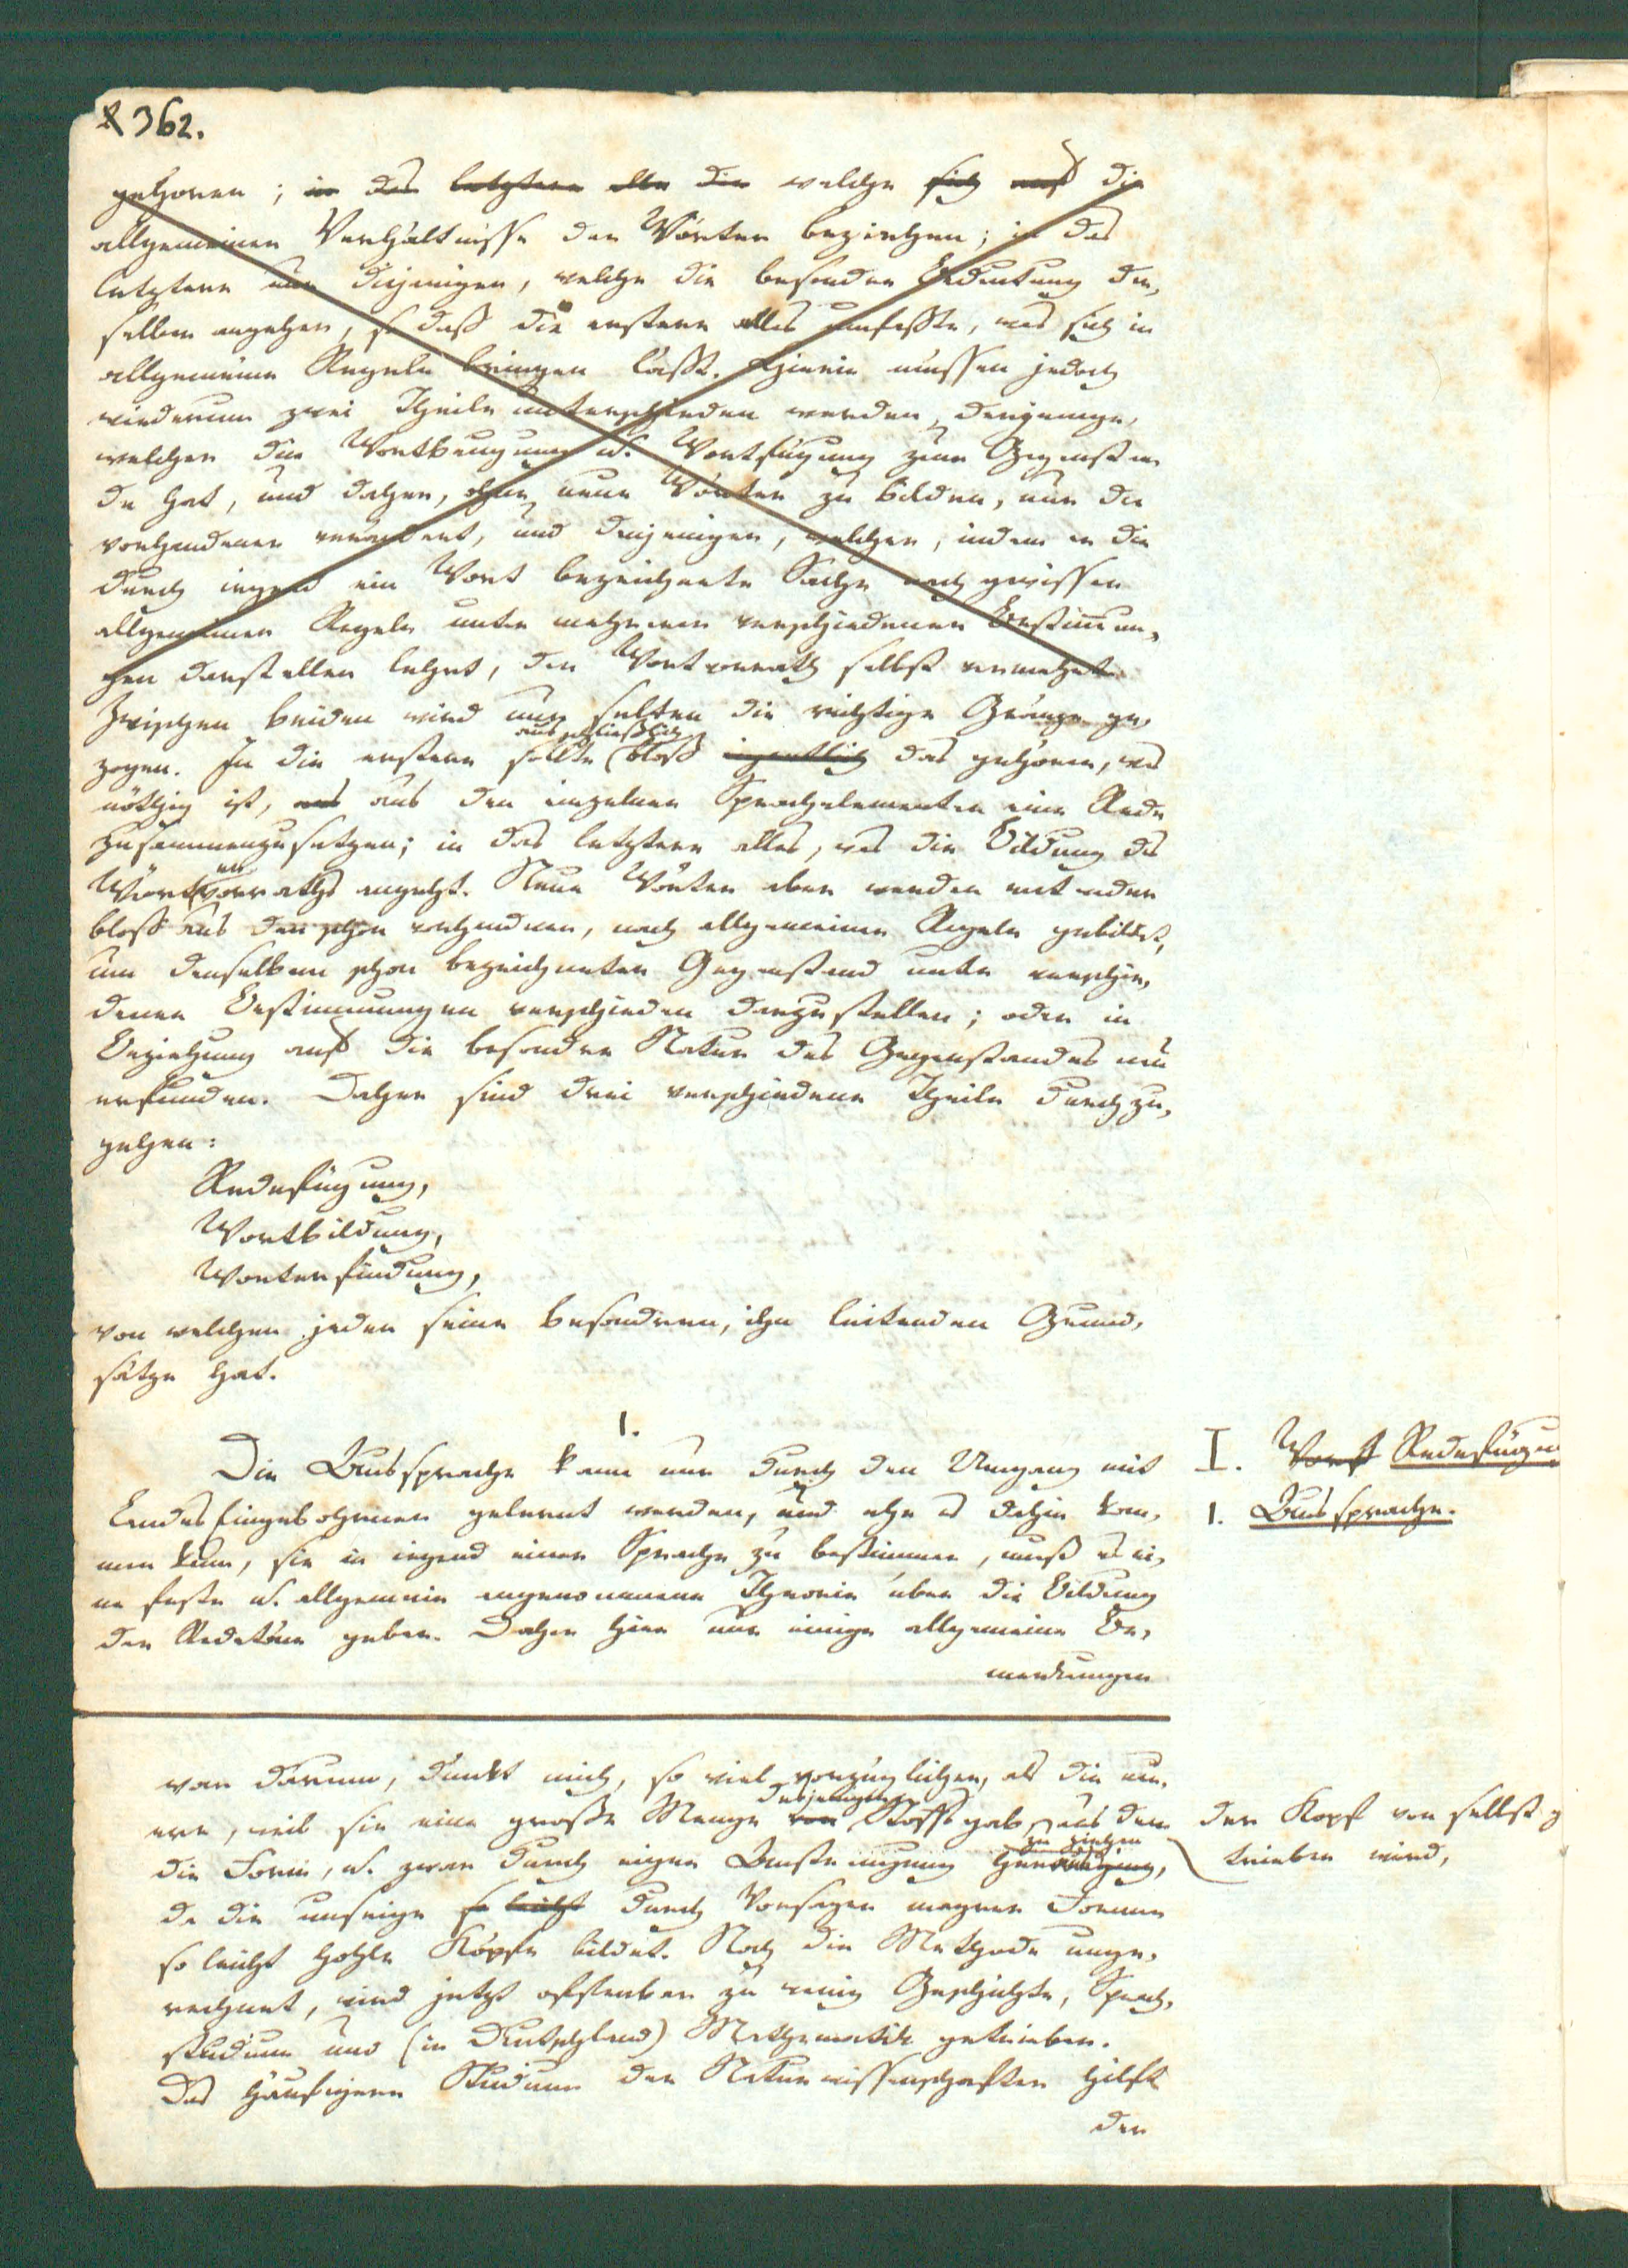 362.
gehoren; in das letztere alle die welche sich auf die
allgemeinen Verhältnisse der Wörter beziehen; in das
letztere nur diejenigen, welche die besondre Bedeutung der-
selben angehen, so daß die erstere alles umfaßte, was sich in
allgemeine Regeln bringen läßt. Hierin müssen jedoch
wiederum zwei Theile unterschieden werden, derjenige,
welcher die Wortbeugung u. Wortfügung zum Gegenstan
de hat, und daher, ohne neue Wörter zu bilden, nur die
vorhandenen verändert, und derjenigen, welcher, indem er die
durch irgend ein Wort bezeichnete Sache nach gewissen
allgemeinen Regeln unter mehreren verschiedenen Bestimmun-
gen darstellen lehrt, den Wortvorrath selbst vermehrt.
Zwischen beiden wird nun selten die richtige Gränze ge-
zogen. In die erstere sollte (bloß ausschließlich eigentlich das gehören, was
nöthig ist, um aus den einzelnen Sprachelementen eine Rede
zusammenzusetzen; in das letztere alles, was die Bildung des
Wörtervorraths angeht. Neue Wörter aber werden entweder
bloß aus den schon vorhandnen, nach allgemeinen Regeln gebildet,
um denselben schon bezeichneten Gegenstand unter verschie-
denen Bestimmungen verschieden darzustellen; oder in
Beziehung auf die besondre Natur des Gegenstandes neu
erfunden. Daher sind drei verschiedene Theile durchzu-
gehen:
Redefügung,
Wortbildung,
Worterfindung,
von welchen jeder seine besondren, ihn leitenden Grund-
sätze hat.
1.
Die Aussprache kann nur durch den Umgang mit
Landeseingebohrnen gelernt werden, und ehe es dahin kom-
men kann, sie in irgend einer Sprache zu bestimmen, muß es ei-
ne feste u. allgemein angenommene Theorie über die Bildung
der Redetöne geben. Daher hier nur einige allgemeine Be-
merkungen
I. Wortf Redefügun
1. Aussprache.
war darum, dünkt mich, so viel vorzüglicher, als die neu-
ere, weil sie eine große Menge von desjenigen Stoffs gab, aus dem
die Form, u. zwar durch eigne Anstrengung zu ziehen
der Kopf von selbst g
trieben wird,
da die unsrige so leicht durch Vorsagen magrer Formen
so leicht hohle Köpfe bildet. Noch die Methode unge-
rechnet, wird jetzt offenbar zu wenig Geschichte, Sprach-
studium und (in Deutschland) Mathematik getrieben.
Das häufigere Studium der Naturwissenschaften hilft
der